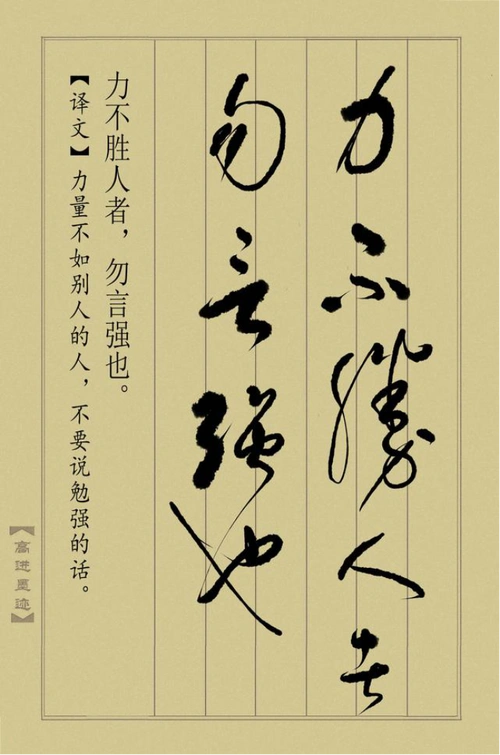 力不勝人者
勿言強也
力不胜人者，勿言强也。
【译文】力量不如别人的人，不要说勉强的话。
【高进墨迹】